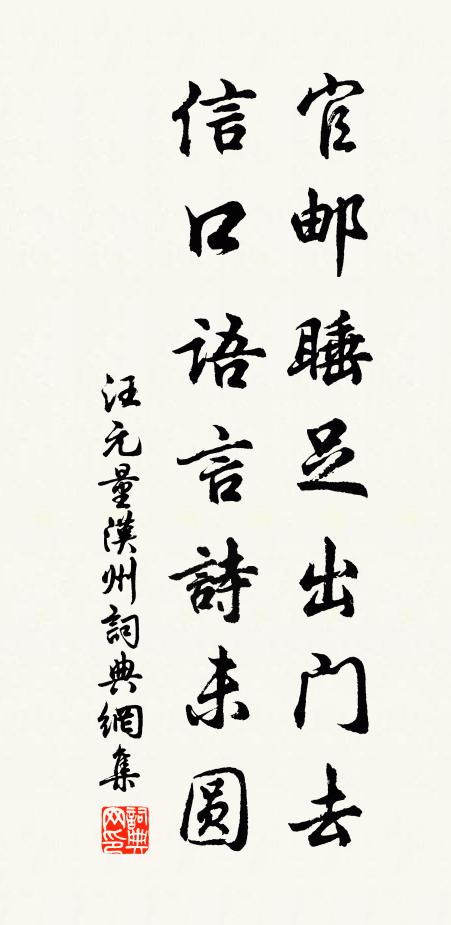 官邮睡足出门去
信口語言詩未圆
汪元量漢州詞典網集
詞典网印